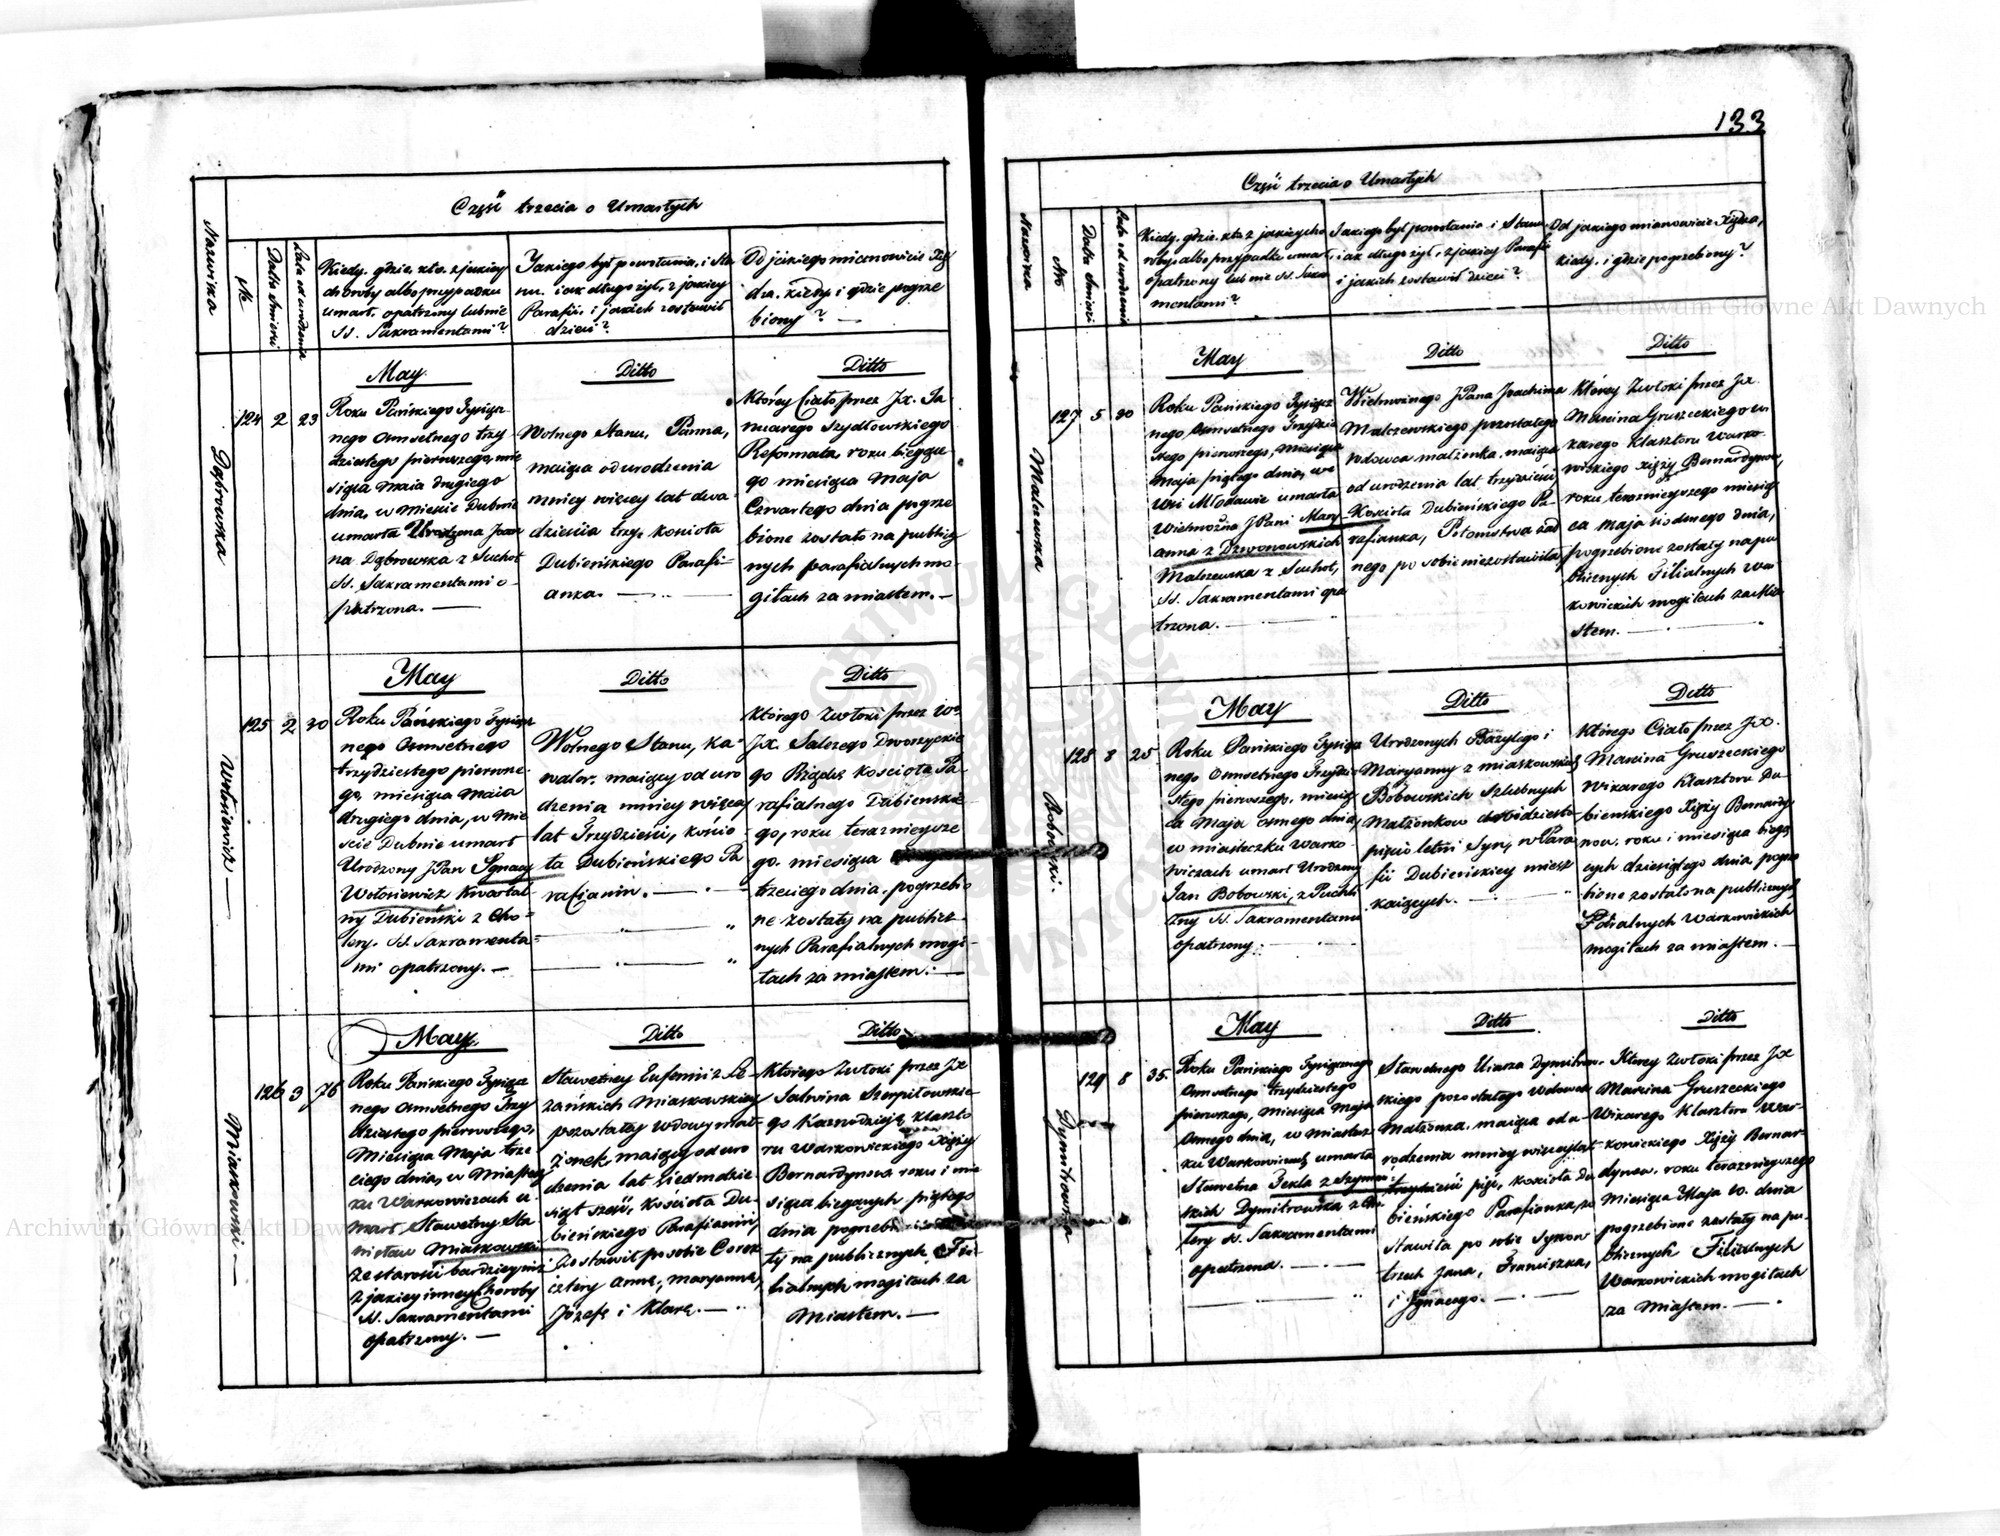 133
Część trzecia o Umarłych
Nazwiska
No
Datta śmierci
Lata od urodzenia
Kiedy, gdzie, kto, z jakiey
choroby albo przypadku
umarł, opatrzony lub nie
SS. Sakramentami?
Jakiego był powołania, i Sta
nu, i jak długo żył, z jakiey
Parafii, i jakich zostawił
dzieci?
Od jakiego mianowicie Xię
dza, kiedy i gdzie pogrze
biony? —
Dąbrowska
124
2
23
May
Roku Pańskiego Tysiącz
nego Osmsetnego trzy
dziestego pierwszego, mie
siąca Maia drugiego
dnia, w mieście Dubnie
umarła Urodzona Joan
na Dąbrowska z Suchot
SS. Sakramentami o-
patrzona. —
Ditto
Wolnego Stanu, Panna,
maiąca od urodzenia
mniey więcey lat dwa
dzieścia trzy, kościoła
Dubieńskiego Parafi-
anka. —
Ditto
Którey Ciało przez Jx. Ja-
nuarego Szydłowskiego
Reformata roku bieżące
go miesiąca Maja
Czwartego dnia pogrze
bione zostało na publicz
nych parafialnych mo-
giłach za miastem. —
Wołniewicz —
125
2
30
May
Roku Pańskiego Tysiącz
nego Osmsetnego
trzydziestego pierwsze-
go, miesiąca Maia
drugiego dnia, w mie
ście Dubnie umarł
Urodzony JPan Ignacy
Wołosiewicz Kwartal-
ny Dubieński z Cho-
lery, SS. Sakramenta-
mi opatrzony. —
Ditto
Wolnego Stanu, Ka-
waler, maiący od uro
dzenia mniey więcey
lat Trzydzieści, kościo
ła Dubieńskiego Pa
rafianin. —
Ditto
Którego Zwłoki przez W°
Jx. Salezego Dworzyckie
go Rządcę Kościoła Pa-
rafialnego Dubieńskie-
go, roku teraznieysze
go, miesiąca
trzeciego dnia, pogrzebio
ne zostały na publicz-
nych Parafialnych mogi-
łach za miastem. —
Miaskowski —
126
3
76
May
Roku Pańskiego Tysiącz
nego Osmsetnego Trzy
dziestego pierwszego,
Miesiąca Maja trze
ciego dnia, w Miastecz
ku Warkowiczach u-
marł Sławetny Sta
nisław Miaskowski
ze starości bardziey niż
z jakiey inney Choroby
SS. Sakramentami
opatrzony. —
Ditto
Sławetney Eufemii z Le
żańskich Miaskowskiey
pozostałey wdowy mał-
żonek, maiący od uro
dzenia lat Siedmdzie-
siąt sześć, kościoła Du-
bieńskiego Parafianin,
zostawił po sobie Corek
cztery Annę, Maryannę,
Józefę i Klarę. —
Ditto
Którego Zwłoki przez Jx
Salwina Szerpiłowskie
go Kaznodzieję klaszto
ru Warkowieckiego Xięży
Bernardynow roku i mie
siąca bieżących piątego
dnia pogrzebi
ły na publicznych Fi-
lialnych mogiłach za
Miastem. —
Część trzecia o Umarłych
Nazwiska
No
Datta śmierci
Lata od urodzenia
Kiedy, gdzie, kto, z jakiey cho
roby, albo przypadku umarł,
opatrzony lub nie SS. Sakra
mentami?
Jakiego był powołania i Stanu
i jak długo żył, z jakiey Parafii
i jakich zostawił dzieci?
Od jakiego mianowicie Xiędza,
kiedy, i gdzie pogrzebiony?
Malewska
127
5
30
May
Roku Pańskiego Tysiącz
nego Osmsetnego Trzydzie
stego pierwszego, miesiąca
Maja piątego dnia, we
Wsi Młodawie umarła
Wielmożna JPani Mary
anna z Dzwonowskich
Malszewska z Suchot,
SS. Sakramentami opa
trzona. —
Ditto
Wielmożnego JPana Joachima
Malczewskiego pozostałego
Wdowca małżonka, maiąca
od urodzenia lat trzydzieści,
Kościoła Dubieńskiego Pa-
rafianka, Potomstwa żad
nego po sobie niezostawiła,
Ditto
Którey Zwłoki przez Jx.
Marcina Gruszeckiego wi
karego klasztoru Warko-
wiskiego Xięży Bernardynow,
roku teraznieyszego miesią
ca Maja siodmego dnia,
pogrzebione zostały na pu
blicznych Filialnych War
kowickich mogiłach za Mia
stem. —
Bobowski.
128
8
25
May
Roku Pańskiego Tysiącz
nego Osmsetnego Trzydzie
stego pierwszego, miesią
ca Maja osmego dnia,
w miasteczku Warko-
wiczach umarł Urodzony
Jan Bobowski, z Puchli
zny SS. Sakramentami
opatrzony.
Ditto
Urodzonych Bazylego i
Maryanny z Miaskowskich
Bobowskich Szlubnych
Małżonkow dwódziesto
pięcio letni Syn, w Para
fii Dubieńskiey miesz
kaiących. —
Ditto
Którego Ciało przez Jx.
Marcina Gruszeckiego
Wikarego Klasztoru Du-
bienskiego Xięży Bernardy
now, roku i miesiąca bieżą
cych dziesiątego dnia pogrze
bione zostało na publicznych
Filialnych Warkowickich
mogiłach za miastem. —
Dymitrowska
129
8
35.
May
Roku Pańskiego Tysiącznego
Osmsetnego trzydziestego
pierwszego, miesiąca Maja
Osmego dnia, w miastecz
ku Warkowiczach umarła
Sławetna Tekla z Szymań-
skich Dymitrowska z Cho
lery SS. Sakramentami
opatrzona. —
Ditto
Sławetnego Uiarza Dymitrow-
skiego pozostałego Wdowca
Małżonka, maiąca od u-
rodzenia mniey więcey lat
trzydzieści pięć, kościoła Du
bieńskiego Parafianka, zo
stawiła po sobie Synow
trzech Jana, Franciszka,
i Ignacego. —
Ditto
Którey Zwłoki przez Jx
Marcina Gruszeckiego
Wikarego Klasztoru War-
kowickiego Xięży Bernar-
dynow, roku teraznieyszego
Miesiąca Maja 10. dnia
pogrzebione zostały na pu-
blicznych Filialnych
Warkowickich mogiłach
za Miastem. —
Archiwum Główne Akt Dawnych
Archiwum Główne Akt Dawnych
ARCHIWUM GŁÓWNE AKT DAWNYCH